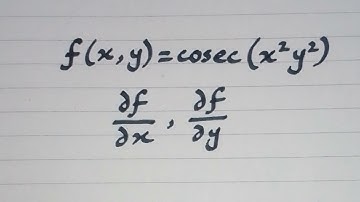 f(x,y)=cosec(x²y²)
∂f/∂x, ∂f/∂y